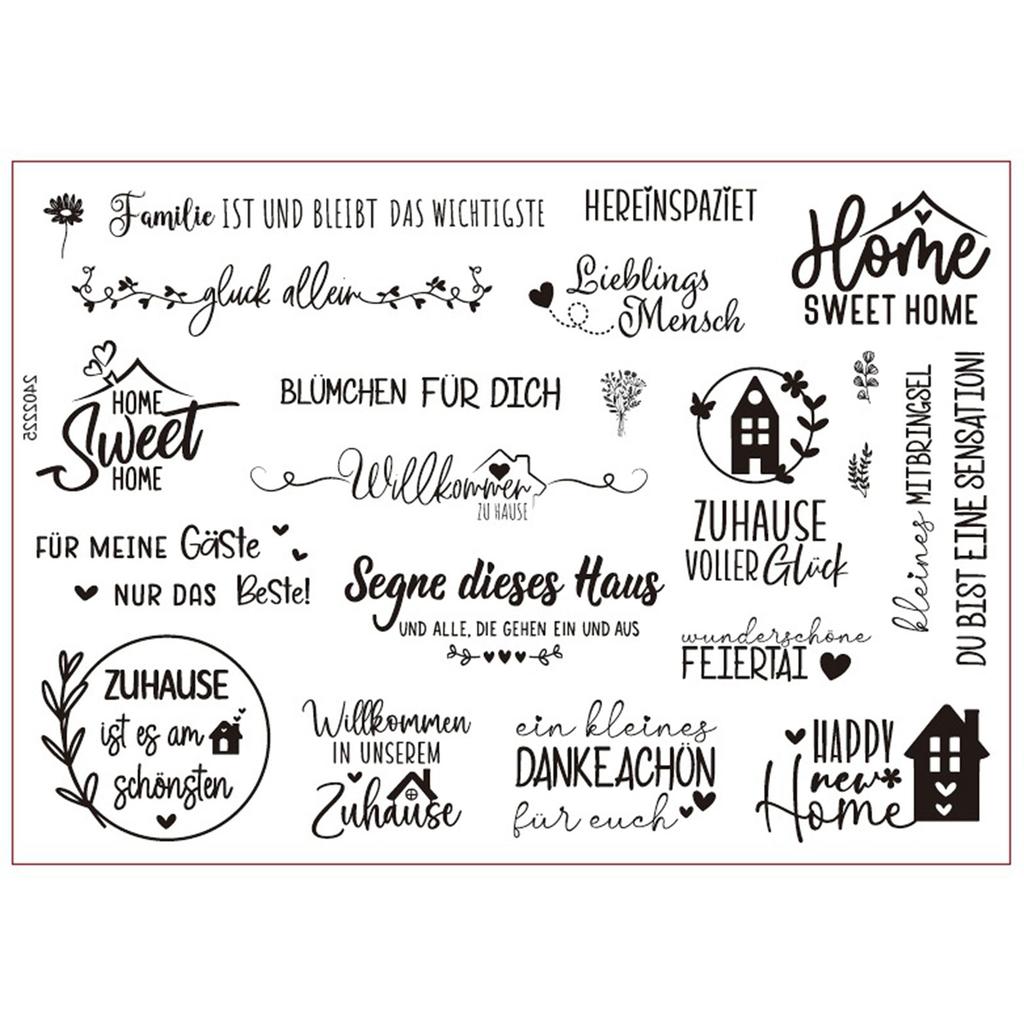 Familie IST UND BLEIBT DAS WICHTIGSTE
HEREINSPAZIET
Home
SWEET HOME
gluck allein
Lieblings
Mensch
2402225
HOME
Sweet
HOME
BLÜMCHEN FÜR DICH
Willkommen
ZU HAUSE
ZUHAUSE
VOLLER Glück
kleines MITBRINGSEL
DU BIST EINE SENSATION!
FÜR MEINE GäSte
NUR DAS BeSte!
Segne dieses Haus
UND ALLE, DIE GEHEN EIN UND AUS
wunderschöne
FEIERTAI
ZUHAUSE
ist es am
schönsten
Willkommen
IN UNSEREM
Zuhause
ein kleines
DANKEACHÖN
für euch
HAPPY
new
Home